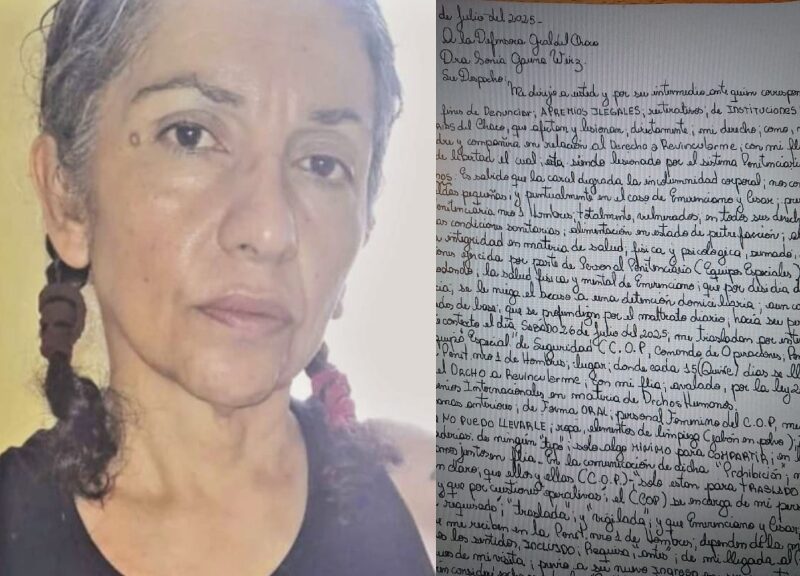 de Julio del 2025-
A la Defensora Gral del Chaco
Dra Sonia Gauna Wirz
Su Despacho:
Me dirijo a usted y por su intermedio ante quien correspon
fines de Denunciar; APREMIOS ILEGALES; reiterativos; de INSTITUCIONES
del Chaco; que afectan y lesionan, directamente; mi derecho; como, m
y compañera en relación al Derecho a Revincularme; con mi fli
de libertad el cual; esta siendo lesionado por el sistema Penitenciari
Es sabido que la cárcel degrada la incolumnidad corporal; nos co
pequeñas; y puntualmente en el caso de Emerenciano y Cesar; pre
Penitenciaria nro 1 Hombres; totalmente; vulnerados; en todos sus derech
condiciones sanitarias; alimentación en estado de putrefacción; a
integridad en materia de salud; fisica y psicologica; sumado,
ejercida por parte de Personal Penitenciario (Equipos Especiales)
la salud fisica y mental de Emerenciano; que por desidia d
se le niega el acceso a una detención domiciliaria; aun co
de base; que se profundizan por el maltrato diario; hacia su pe
contexto el día SABADO 26 de Julio del 2025; me trasladan por inte
Especial de Seguridad C.C.O.P; comando de Operaciones, Pen
Penit. nro 1 de Hombres; lugar; donde cada 15 (Quince) días se ll
el DRCHO a Revincularme; con mi flia; avalado, por la ley 2
Internacionales en materia de Drchos Humanos.
anteriores; de Forma ORAL; personal Femenino del C.O.P, me
NO PUEDO LLEVARLE; ropa, elementos de limpieza (jabón en polvo);
de ningun "tipo"; solo algo MINIMO para COMPARTIR; en l
juntos en flia- En la comunicación de dicha "Prohibición"; m
claro; que ellos y ellas (C.C.O.P)- "solo estan para TRASLADO
y que por cuestiones operativas; el (COP) se encarga de mi pers
requisado; "traslada"; y "vigilada"; y que Emerenciano y Cesar
me reciben en la Penit. nro 1 de Hombres; dependen de la
los sentidos, INCLUSO; Requisa, "antes"; de mi llegada al
de mi visita; previo a su nuevo Ingreso